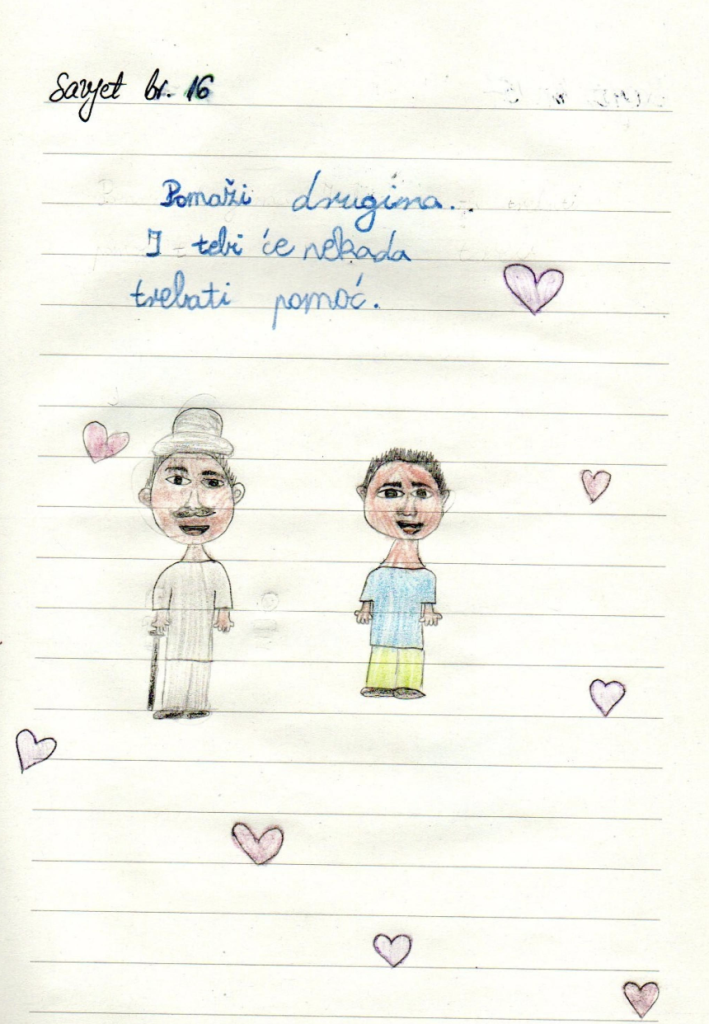 Savjet br. 16
Pomaži drugima..
I tebi će nekada
trebati pomoć.